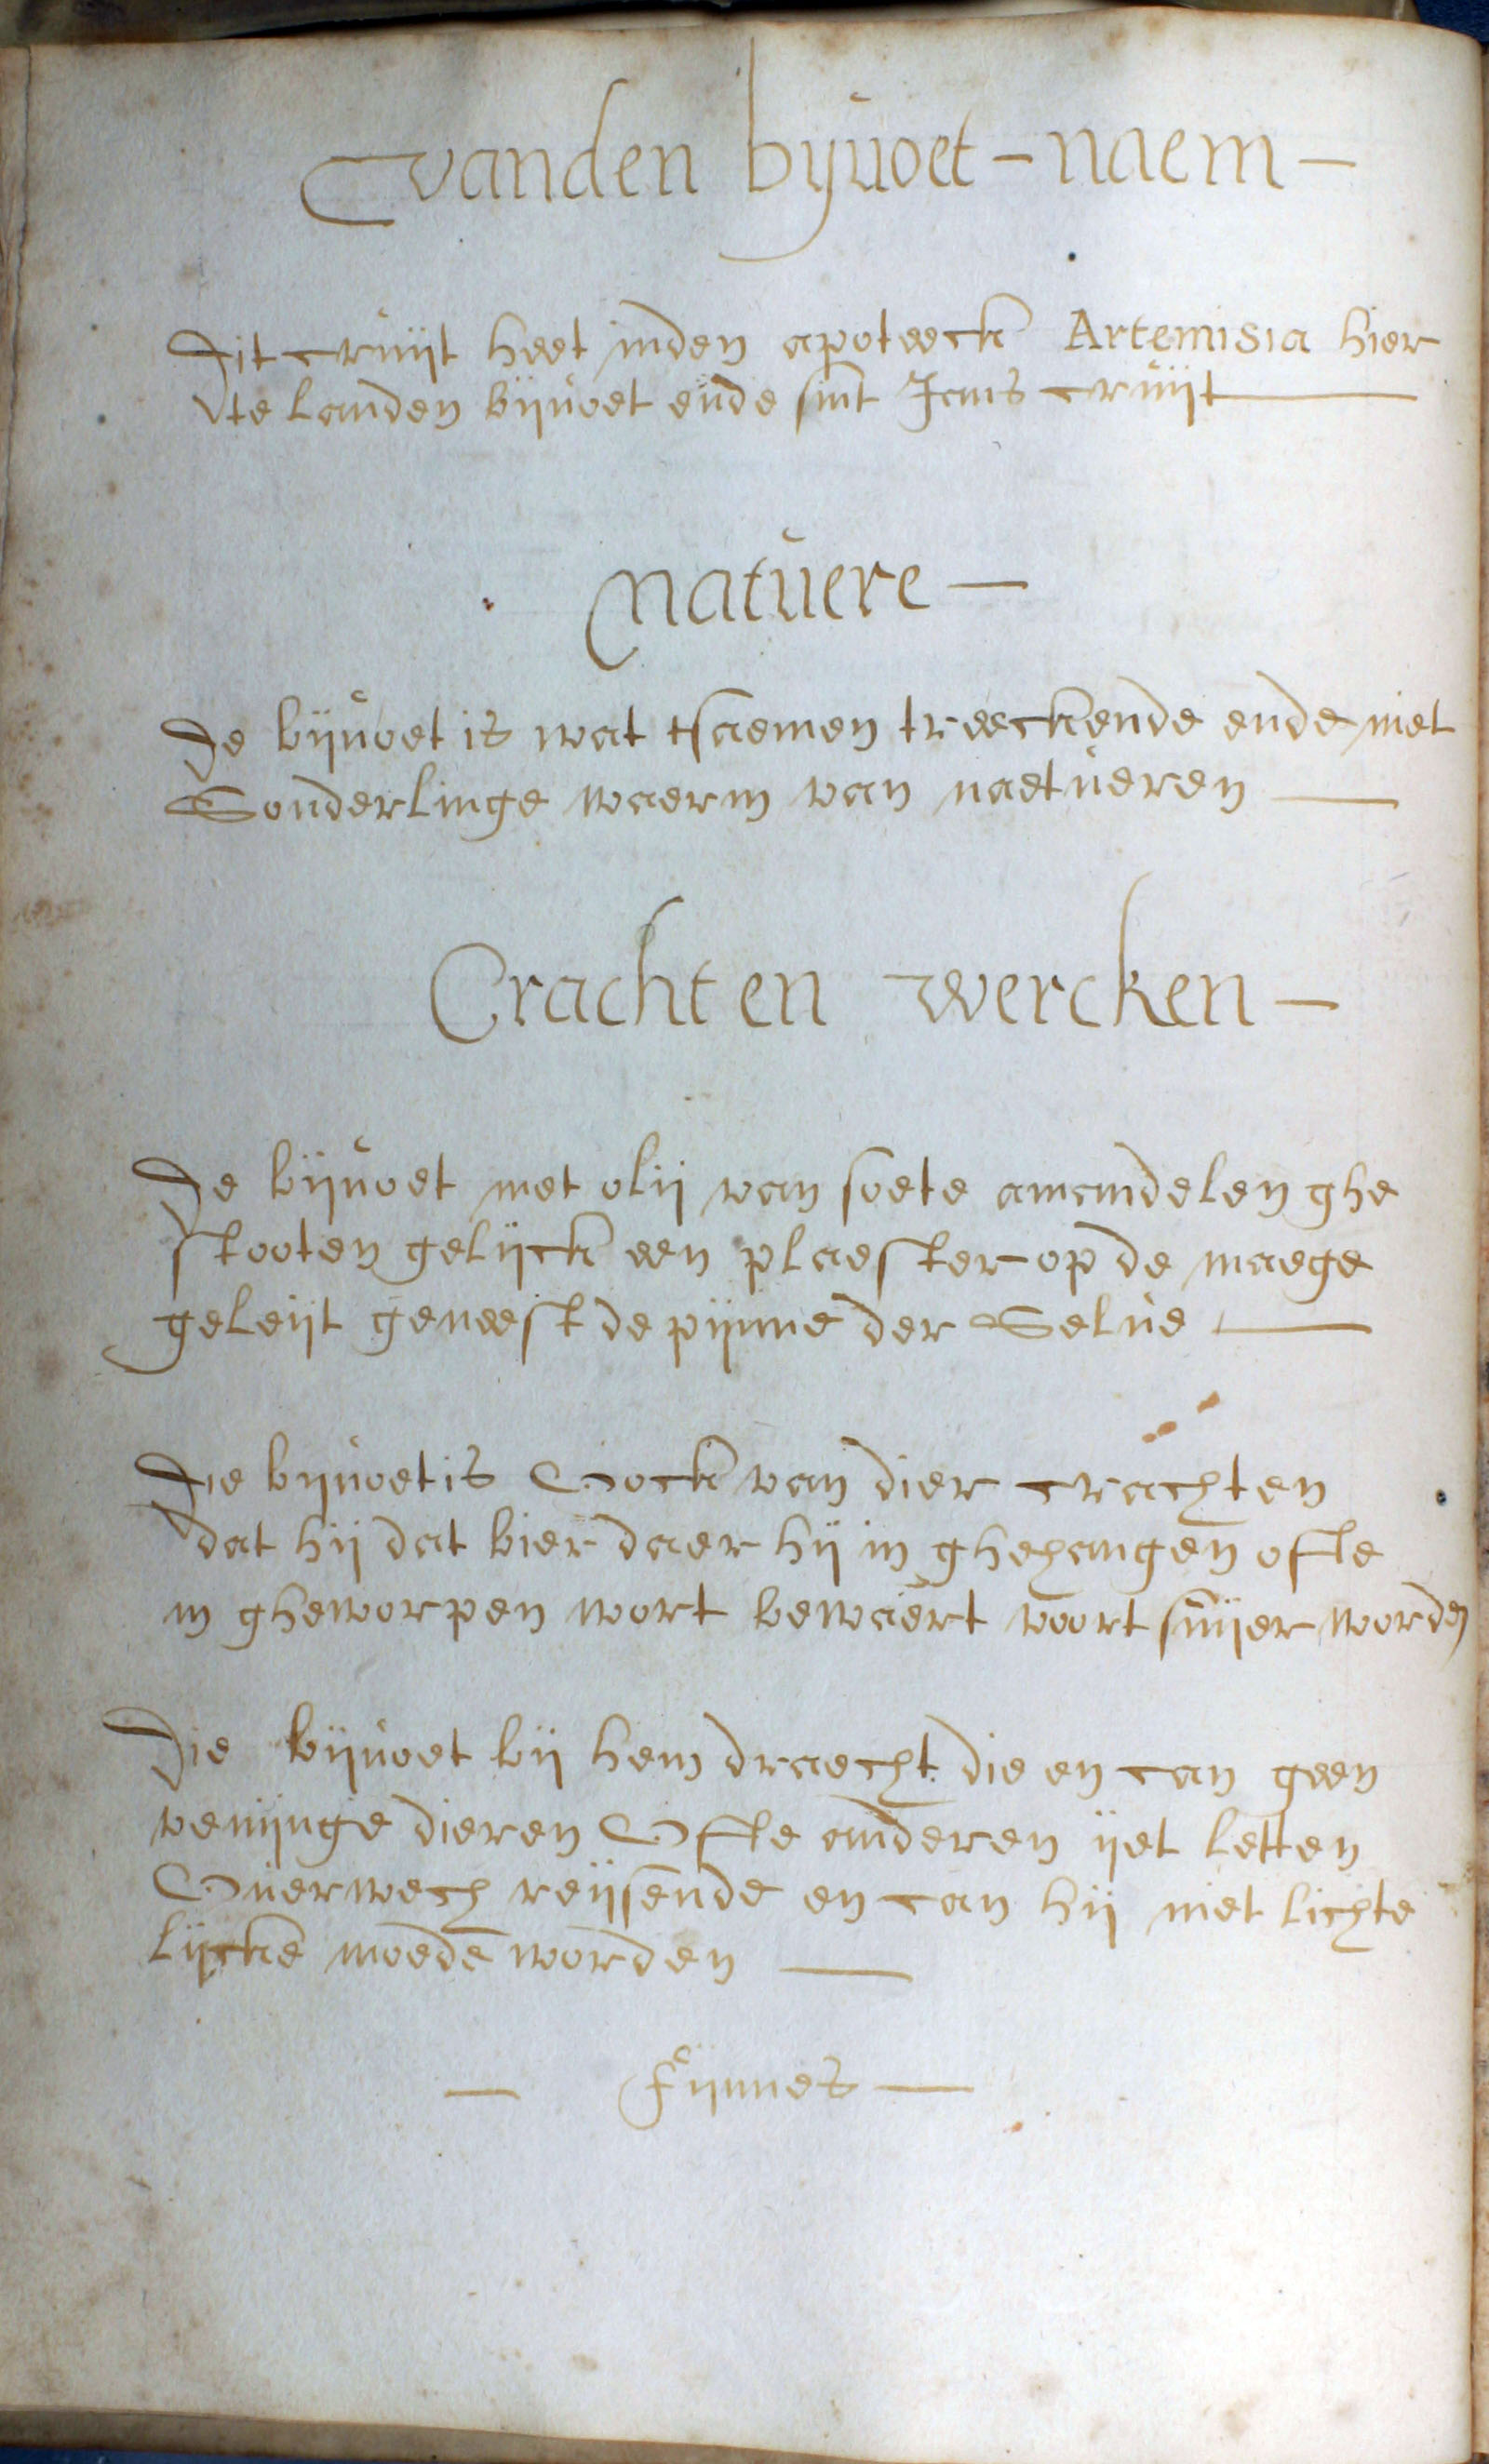 vanden bijuoet - naem -
Dit cruijt heet inden apoteeck Artemisia hier
te landen bijuoet ende sint Jans cruijt
natuere -
De bijuoet is wat tsaemen treeckende ende niet
Sonderlinge waerm van naetueren
Crachten wercken -
De bijuoet met olij van soete amandelen ghe
stooten gelijck een plaester op de maege
geleijt geneest de pijnne der Selue
Die bijuoet is Oock van dier crachten
dat hij dat bier daer hij in ghehangen ofte
in gheworpen wort bewaert voort suijer worden
Die bijuoet bij hem draecht die en can geen
venijnge dieren Ofte anderen ijet letten
Ouerwech reijsende en can hij niet lichte
lijcke moede worden
- Fijnnes -